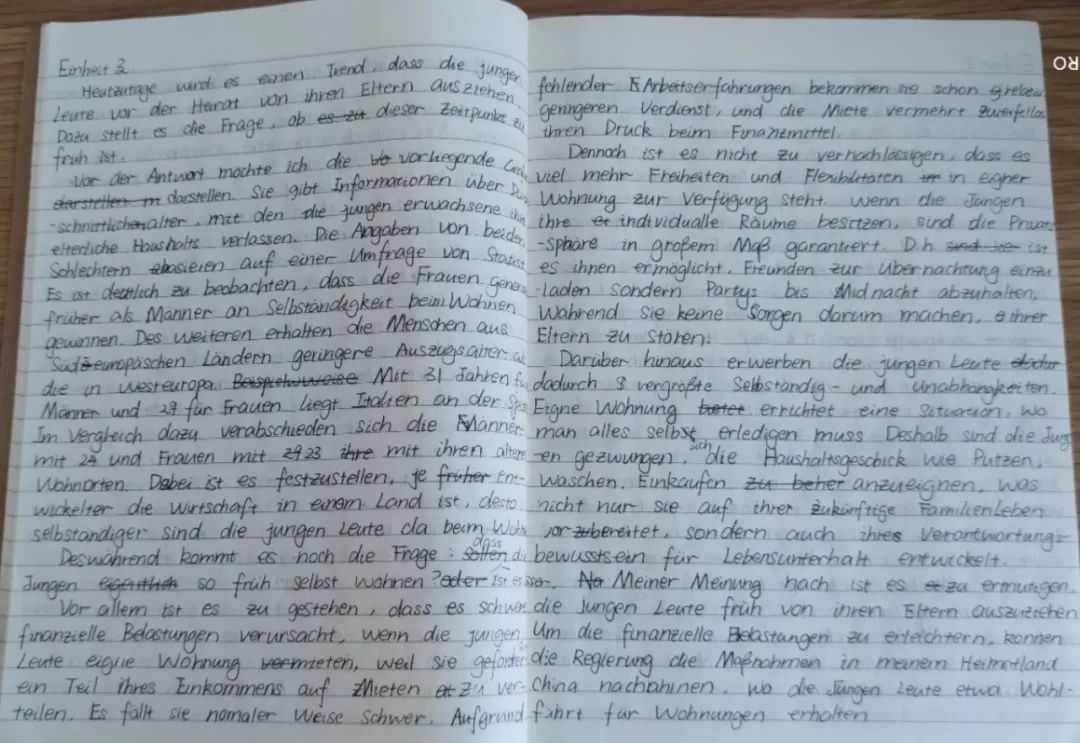 Einheit 3
Heutzutage wird es einen Trend, dass die jungen
Leute vor der Heirat von ihren Eltern ausziehen.
Dazu stellt es die Frage, ob es zu dieser Zeitpunkt zu
früh ist.
Vor der Antwort möchte ich die vorliegende
darstellen darstellen. Sie gibt Informationen über
-schnittlichenalter, mit den die jungen erwachsene ihre
elterliche Haushalts verlassen. Die Angaben von beiden
Schlechtern basieren auf einer Umfrage von
Es ist deutlich zu beobachten, dass die Frauen
früher als Männer an Selbständigkeit beim Wohnen
gewinnen. Des weiteren erhalten die Menschen aus
Südeuropäischen Ländern geringere Auszugsalter als
die in westeuropa. Beispielsweise Mit 31 Jahren für
Männer und 29 für Frauen liegt Italien an der
Im Vergleich dazu verabschieden sich die Männer
mit 24 und Frauen mit 23 ihre mit ihren
Wohnorten. Dabei ist es festzustellen, je früher Ent-
wickelter die Wirtschaft in einem Land ist, desto
selbständiger sind die jungen Leute da beim
Deswährend kommt es noch die Frage: sollen dass
Jungen eigentlich so früh selbst wohnen? oder ist es
Vor allem ist es zu gestehen, dass es schwer
finanzielle Belastungen verursacht, wenn die jungen
Leute eigne Wohnung vermieten, weil sie
ein Teil ihres Einkommens auf Mieten zu ver-
teilen. Es fällt sie nomaler Weise schwer. Aufgrund
fehlender Arbeitserfahrungen bekommen sie schon
geringeren Verdienst, und die Miete vermehrt zweifellos
ihren Druck beim Finanzmittel.
Dennoch ist es nicht zu vernachlässigen, dass es
viel mehr Freiheiten und Flexibilitäten in eigner
Wohnung zur Verfügung steht. Wenn die Jungen
ihre individualle Räume besitzen, sind die
-sphäre in großem Maß garantiert. D.h. ist
es ihnen ermöglicht, Freunden zur übernachtung einzu
-laden sondern Partys bis Midnacht abzuhalten,
Während sie keine Sorgen darum machen, ihrer
Eltern zu stören.
Darüber hinaus erwerben die jungen Leute
dadurch vergrößte Selbständig- und unabhängkeiten.
Eigne Wohnung bietet errichtet eine Situation, wo
man alles selbst erledigen muss Deshalb sind die Jung
-en gezwungen, sich die Haushaltsgeschick wie Putzen,
Waschen, Einkaufen anzueignen, was
nicht nur sie auf ihrer zukünftige Familienleben
vorbereitet, sondern auch ihres Verantwortungs-
bewusstsein für Lebensunterhalt entwickelt.
Meiner Meinung nach ist es zu ermutigen,
die jungen Leute früh von ihren Eltern auszuziehen
Um die finanzielle Belastungen zu erleichtern, können
die Regierung die Maßnahmen in meinem Heimatland
China nachahmen, wo die Jungen Leute etwa Wohl-
fahrt für Wohnungen erhalten